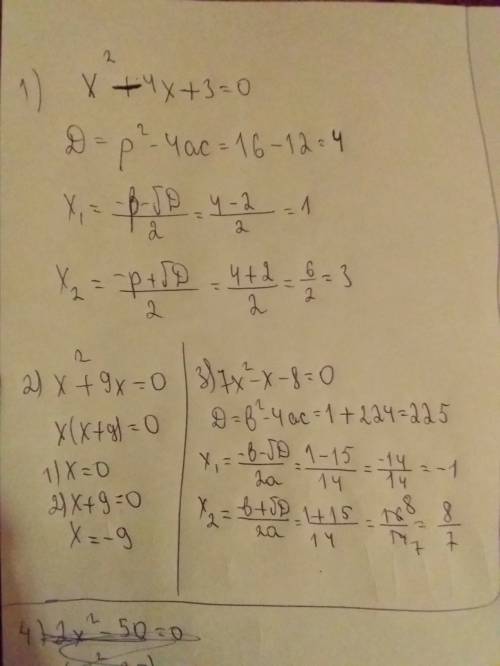 1) x² - 4x + 3 = 0
D = p² - 4ac = 16 - 12 = 4
x₁ = (-p - √D)/2 = (4 - 2)/2 = 1
x₂ = (-p + √D)/2 = (4 + 2)/2 = 6/2 = 3
2) x² + 9x = 0
x(x + 9) = 0
1) x = 0
2) x + 9 = 0
x = -9
3) 7x² - x - 8 = 0
D = в² - 4ac = 1 + 224 = 225
x₁ = (-в - √D)/2a = (1 - 15)/14 = -14/14 = -1
x₂ = (-в + √D)/2a = (1 + 15)/14 = 16 8/14 7 = 8/7
4) 2x² - 50 = 0